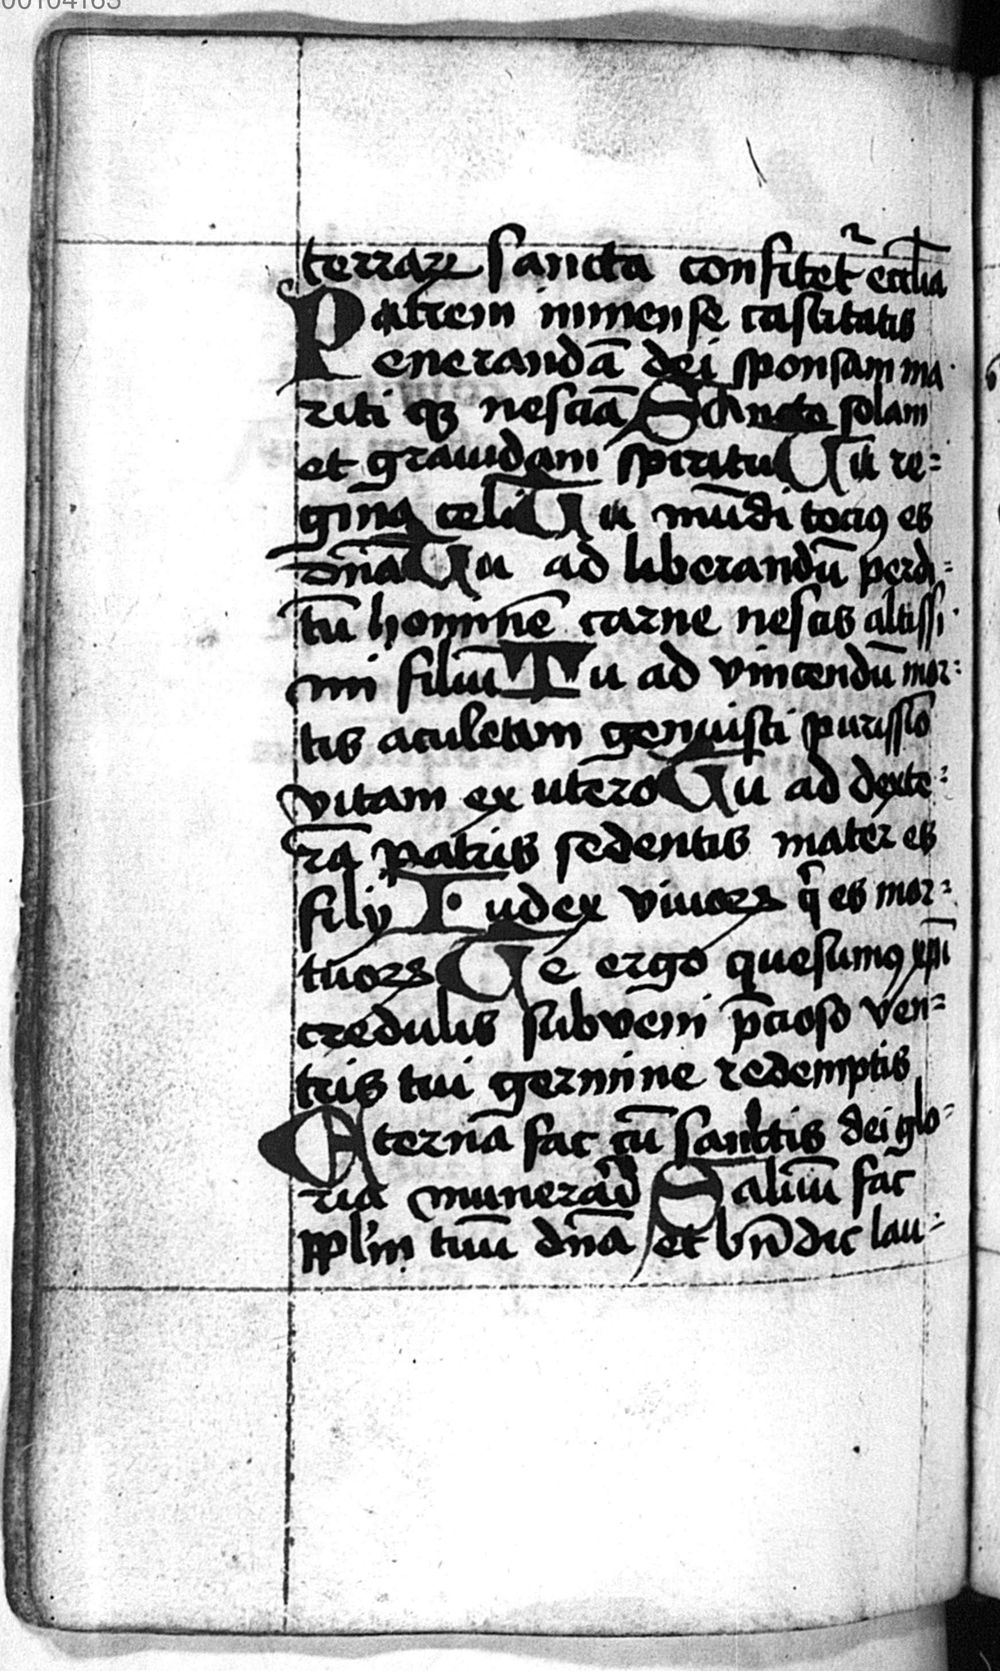 00104163
terraꝝ sancta confitet᷑ ecclīa
Patrem immense castitatis
enerandā dei sponsam ma
riti qꝫ nesciā Sancto solam
et grauidam spiritu Tu re=
gina celi Tu mūdi tociꝰ es
dn̄a Tu ad liberandū perdi=
tū hominē carne nescis altissi
mi filiū Tu ad vincendū mor=
tis aculeum genuisti purissīo
vitam ex utero Tu ad dexte=
rā patris sedentis mater es
filij Iudex viuoꝝ q̄ es mor=
tuoꝝ Te ergo quesumꝰ xp̄i
credulis subveni p̄cioso ven=
tris tui germine redemptis
Eternā fac cū sanctis dei glo=
ria munerād Saluū fac
ppl'm tuū dn̄a et bn̄dic lau=